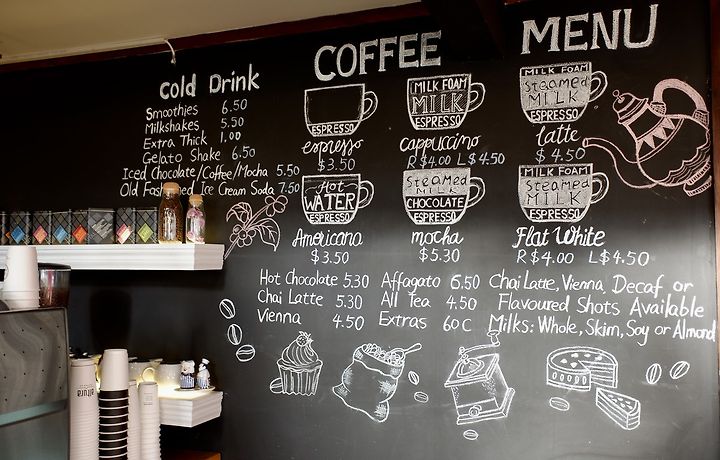 COFFEE MENU
Cold Drink
Smoothies 6.50
Milkshakes 5.50
Extra Thick 1.00
Gelato Shake 6.50
Iced Chocolate/Coffee/Mocha 5.50
Old Fashioned Ice Cream Soda 7.50
ESPRESSO
espresso
$3.50
MILK FOAM
MILK
ESPRESSO
cappuccino
R $4.00 L $4.50
MILK FOAM
Steamed
MILK
ESPRESSO
latte
$ 4.50
Hot
WATER
ESPRESSO
Americano
$3.50
Steamed
MILK
CHOCOLATE
ESPRESSO
mocha
$5.30
MILK FOAM
Steamed
MILK
ESPRESSO
Flat White
R $4.00 L $4.50
Hot Chocolate 5.30
Chai Latte 5.30
Vienna 4.50
Affagato 6.50
All Tea 4.50
Extras 60c
Chai Latte, Vienna, Decaf or
Flavoured Shots Available
Milks: Whole, Skim, Soy or Almond